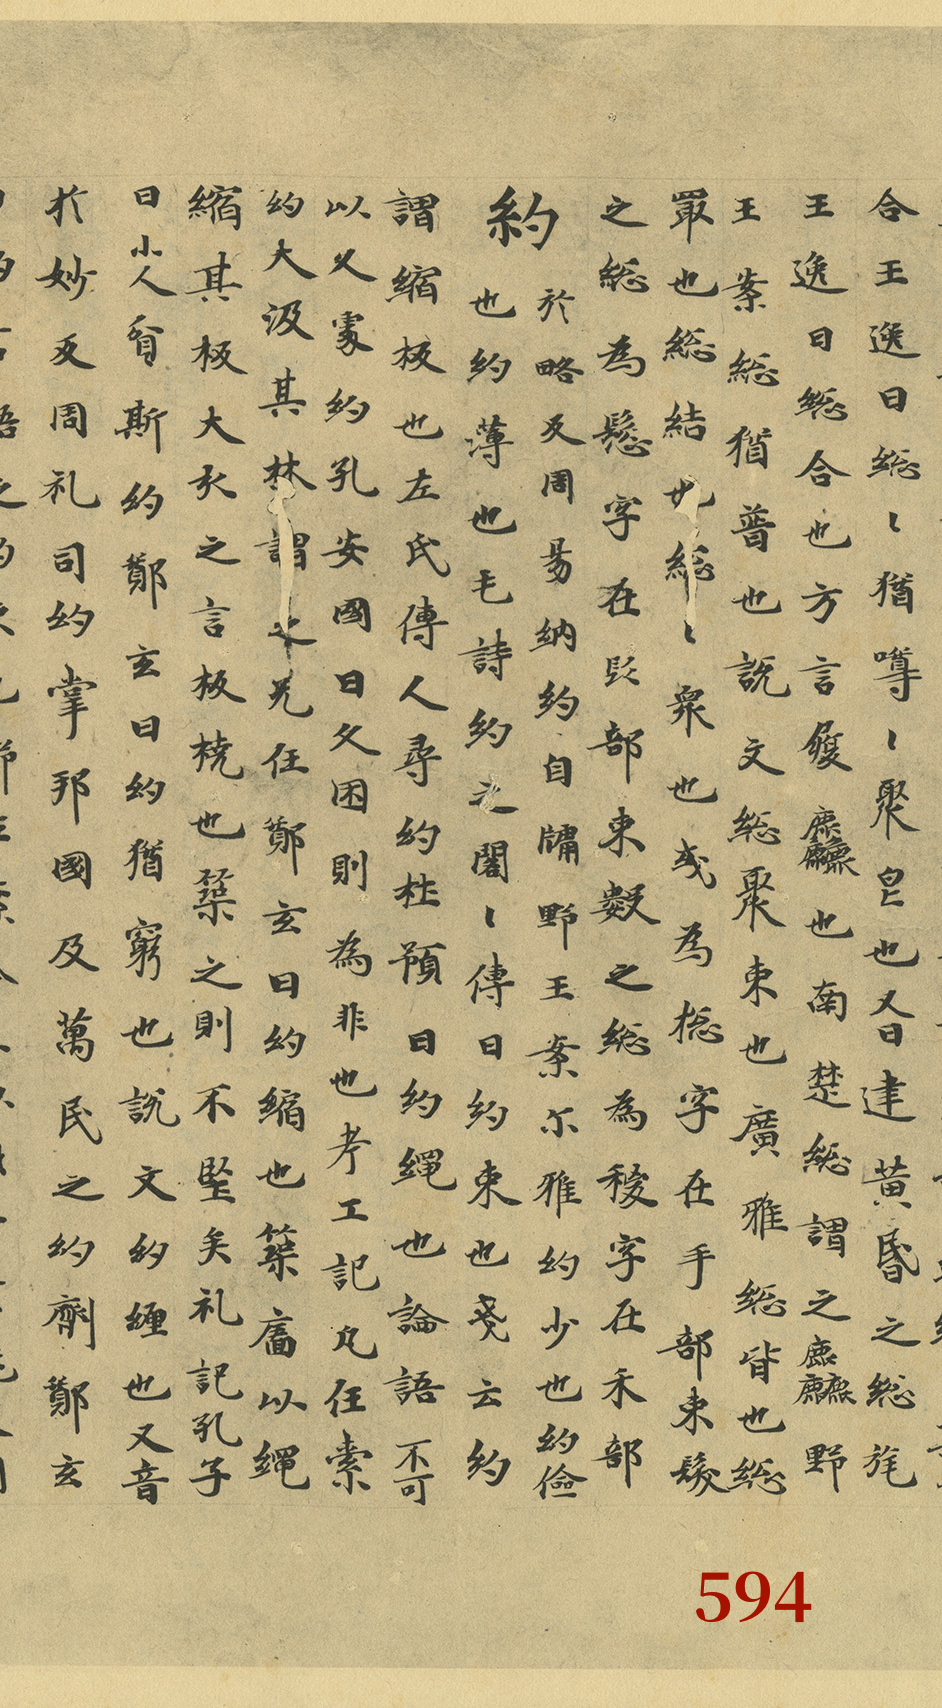 合王逸曰緫〻猶噂〻聚皃也又曰建黃昏之緫旄
王逸曰緫合也方言䉤麤也南楚緫謂之麤野
王案緫猶普也說文緫聚束也廣雅緫皆也緫
冣也緫結也緫〻衆也或為揔字在手部束髮
之緫為鬆字在髟部束數之緫為稯字在禾部
約於略反周易納約自牖野王案尒雅約少也約儉
也約薄也毛詩約之閣〻傳曰約束也戔云約
謂縮板也左氏傳人尋約杜預曰約繩也論語不可
以久處約孔安國曰久困則為非也考工記凡任索
約大汲其林謂之无任鄭玄曰約縮也築啚以繩
縮其板大汏之言板橈也築之則不堅矣礼記孔子
曰小人貧斯約鄭玄曰約猶窮也說文約纏也又音
於妙反周礼司約掌邦國及萬民之約劑鄭玄
594